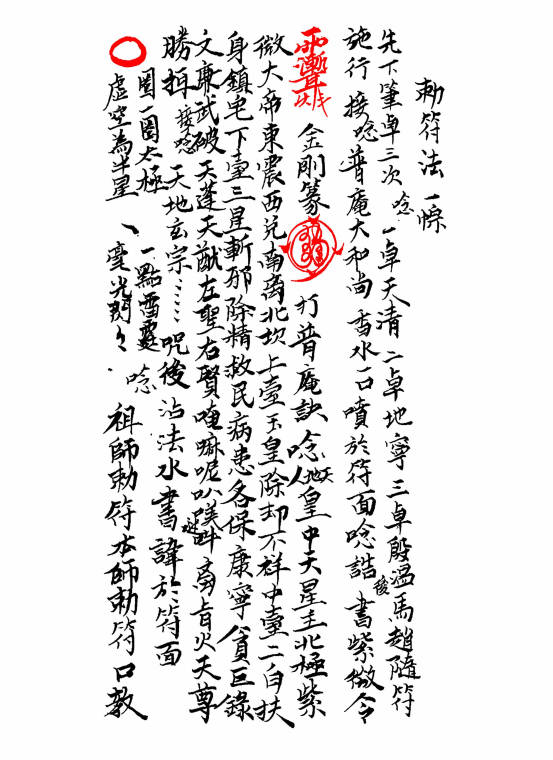 勅符法一條
先下筆卓三次 唸 一卓天清 二卓地寧 三卓殷溫馬趙隨符
施行 接唸 普庵大和尚 香水一口噴於符面 唸誥後 書紫微令
金剛篆 打普庵訣 唸 天地人皇 中天星主北極紫
微大帝 東震西兌南离北坎 上臺玉皇除却不祥 中臺二白扶
身鎮宅 下臺三星斬邪除精 救民病患 各保康寧 貪巨錄
文廉武破 天蓬天猷 左聖右賢 唵嘛呢叭 啴 奉旨火天尊
勝揖 接唸 天地玄宗⋯⋯ 咒後 沾法水書諱於符面
圈一圈太極 一點雷霆 唸
虛空為半星 、毫光閃々 祖師勅符 本師勅符 口教